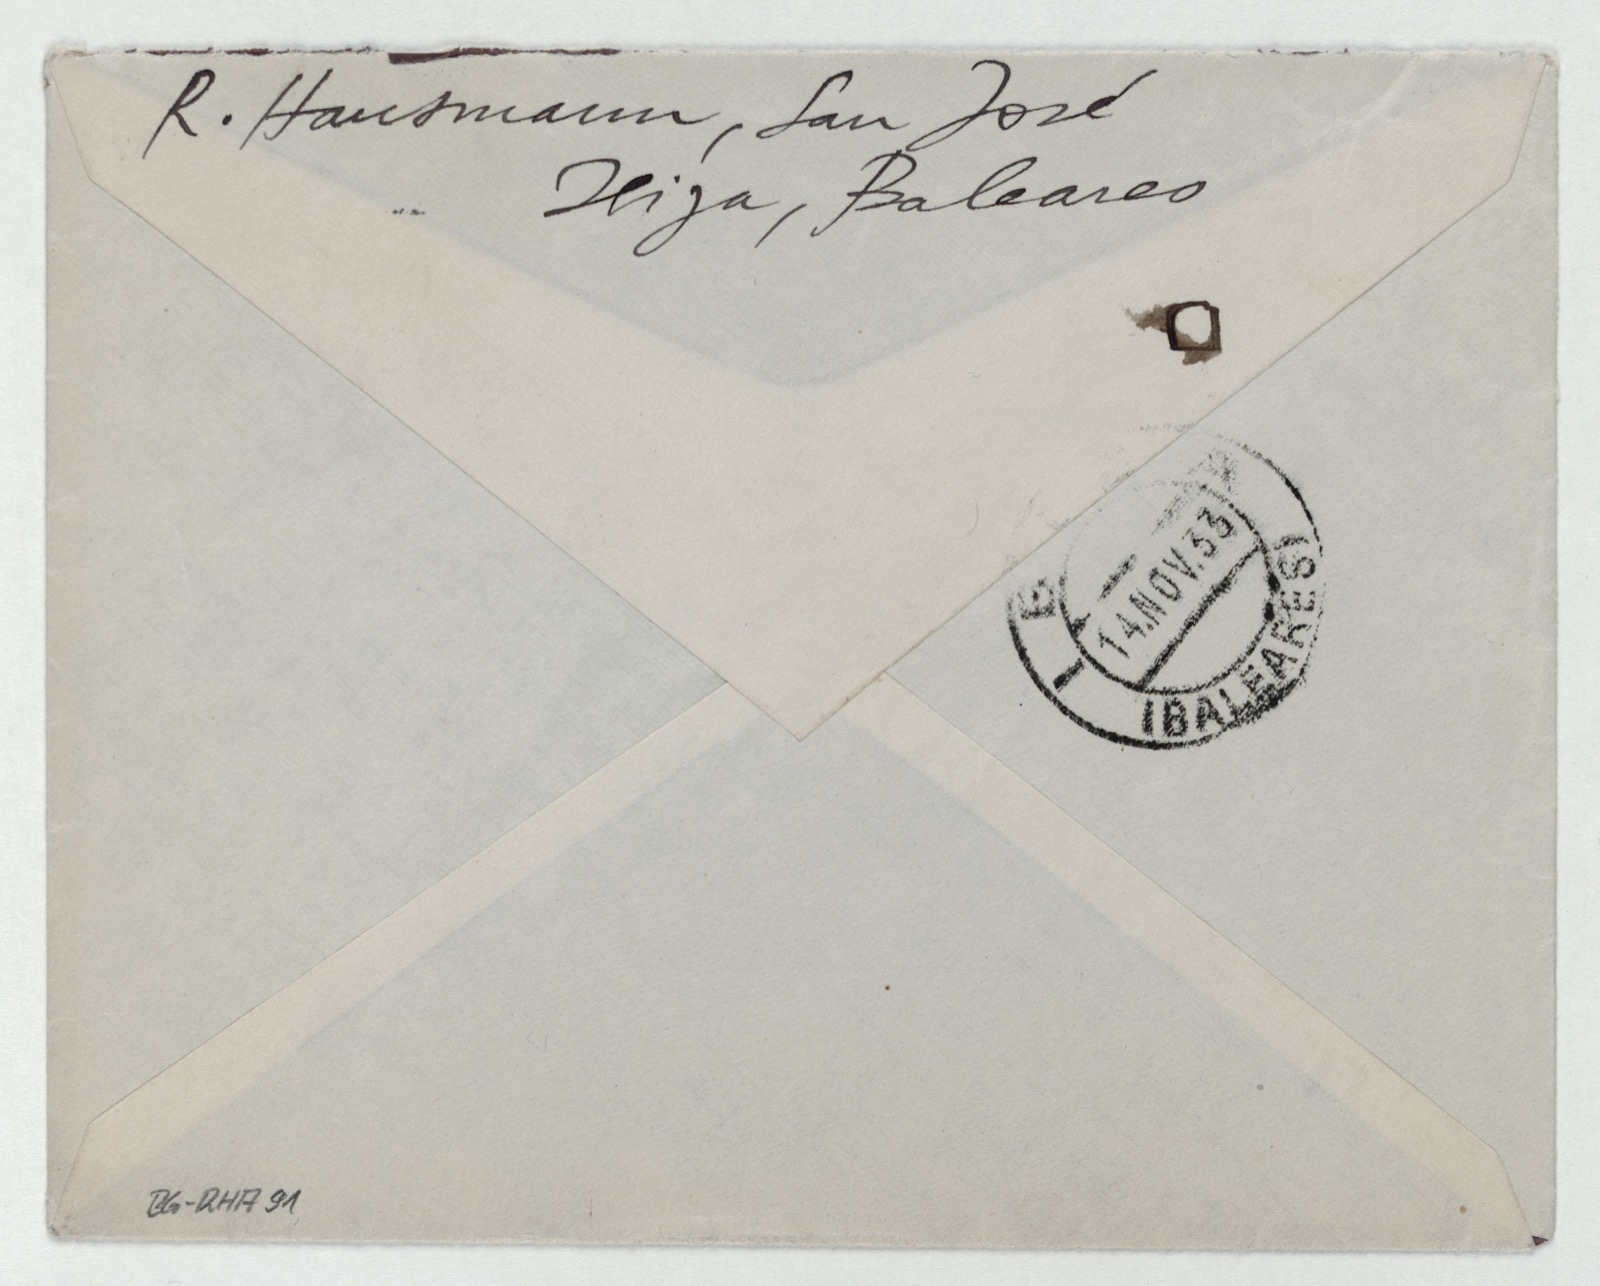 R. Hausmann, San José
Ibiza, Baleares
14.NOV.33
(BALEARES)
BG-RHA 91